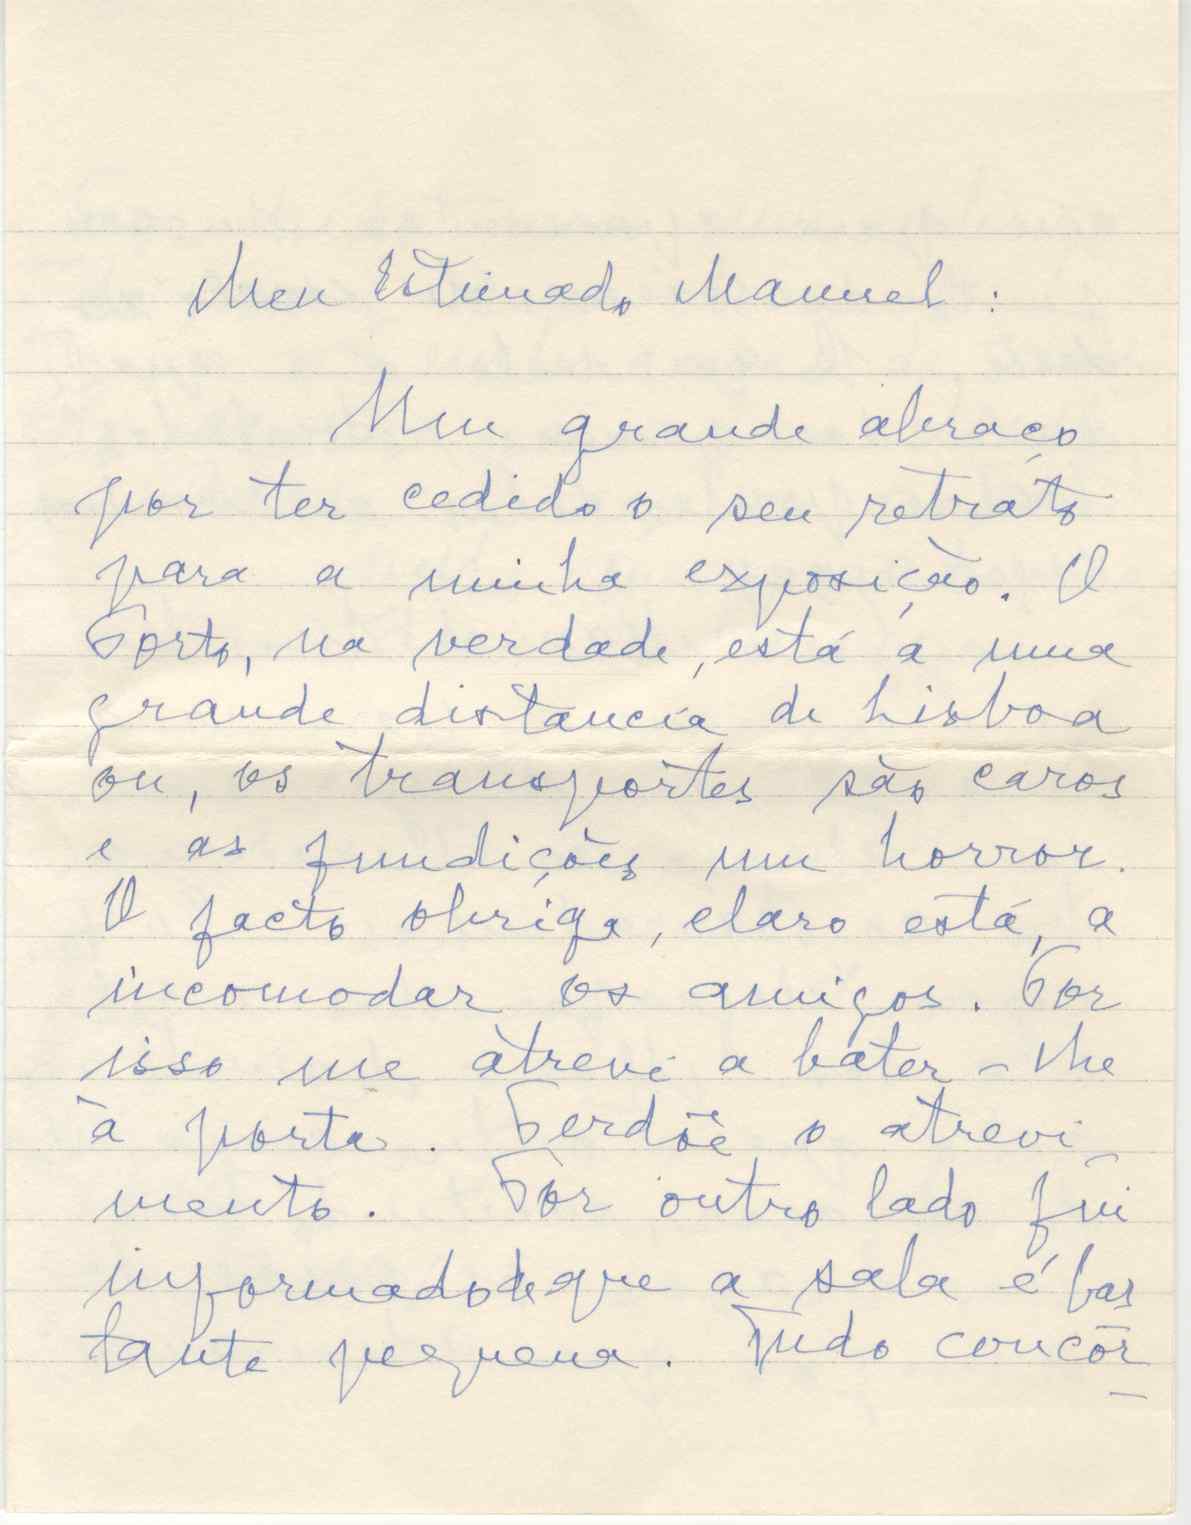 Meu Estimado Manuel :
Um grande abraço
por ter cedido o seu retrato
para a minha exposição. O
Porto, na verdade, está a uma
grande distancia de Lisboa
ou, os transportes são caros
e as fundições um horror.
O facto obriga, claro está, a
incomodar os amigos. Por
isso me atrevi a bater-lhe
à porta. Perdõe o atrevi-
mento. Por outro lado fui
informado de que a sala é bas
tante pequena. Tudo concor-